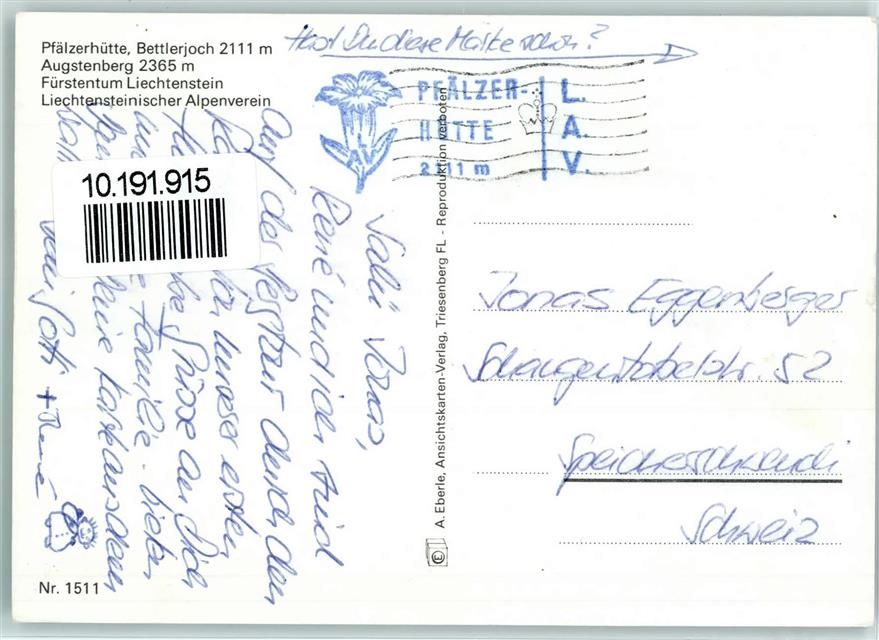 Pfälzerhütte, Bettlerjoch 2111 m
Augstenberg 2365 m
Fürstentum Liechtenstein
Liechtensteinischer Alpenverein
Hast Du diese Marke schon?
PFÄLZER-
HÜTTE
2111 m
L.
A.
V.
LAV
10.191.915
Salü Jonas,
René und ich sind
auf der durch den
unserer ersten
Grüsse an Dich
und Familie.
Karte aus dem
+ René
A. Eberle, Ansichtskarten-Verlag, Triesenberg FL - Reproduktion verboten
Jonas Eggenberger
52
Speicherschwendi
Schweiz
Nr. 1511